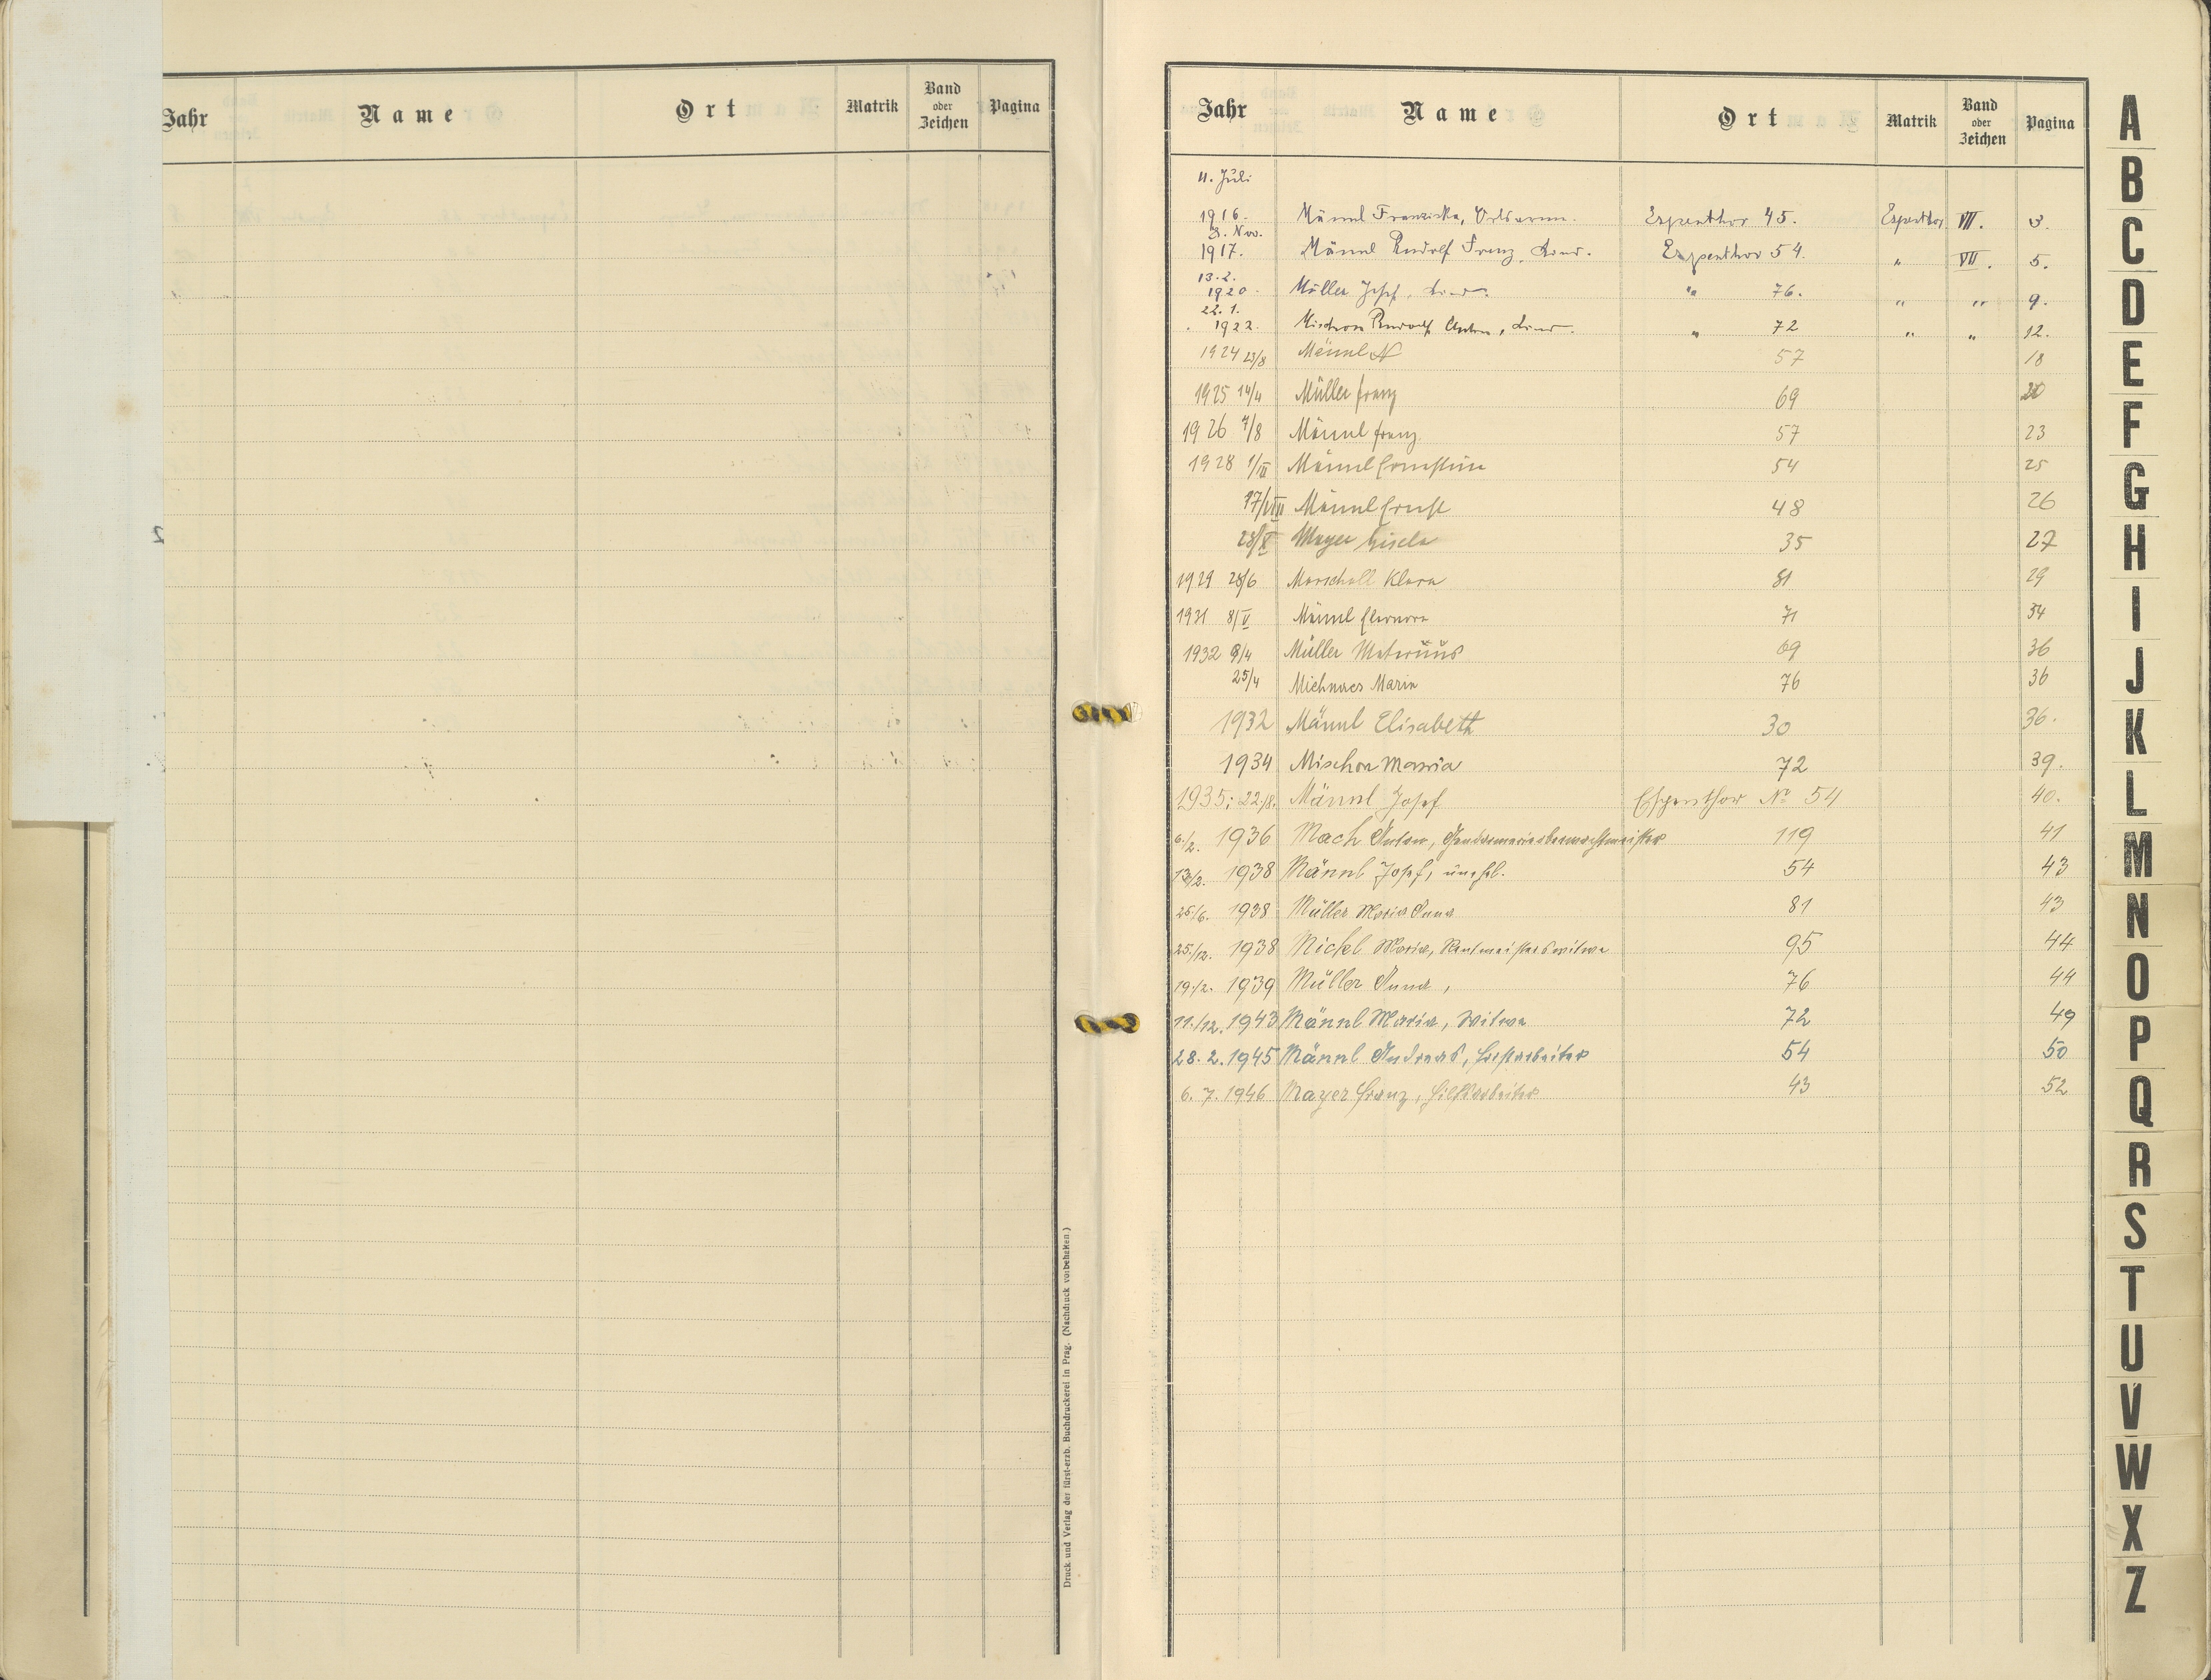 Jahr Name Ort Matrik Band oder Zeichen Pagina
Druck und Verlag der fürst-erzb. Buchdruckerei in Prag. (Nachdruck vorbehalten.)
Jahr Name Ort Matrik Band oder Zeichen Pagina
11. Juli
1916. Männl Franziska, Ortsarme. Espenthor 45. Espenthor VII. 3.
3. Nov.
1917. Männl Rudolf Franz, Kind. Espenthor 54. " VII. 5.
13.2.
1920. Müller Josef, Kind. " 76. " " 9.
22.1.
1922. Rudolf Anton, Kind. " 72 " " 12.
1924 23/8 Männl 57 18
1925 14/4 Müller Franz 69 20
1926 4/8 Männl Franz 57 23
1928 1/III Männl Ernestine 54 25
17/VIII Männl Ernst 48 26
Mayer Gisela 35 27
1929 28/6 Marschall Klara 81 29
1931 8/V Männl Eleonora 71 34
1932 9/4 Müller Maternus 69 36
25/4 Maria 76 36
1932 Männl Elisabeth 30 36.
1934 Mischon Maria 72 39.
1935; 22./8. Männl Josef Espenthor No 54 40.
6./2. 1936 Mach Anton, 119 41
1938 Männl Josef, unehel. 54 43
25/6. 1938 Müller Maria Anna 81 43
25./12. 1938 Nickl Maria, Rentmeisterswitwe 95 44
19./2. 1939 Müller Anna, 76 44
11./12. 1943 Männl Maria, Witwe 72 49
28. 2. 1945 Männl Andreas, Forstarbeiter 54 50
6. 7. 1946 Mayer Franz, Hilfsarbeiter 43 52
A
B
C
D
E
F
G
H
I
J
K
L
M
N
O
P
Q
R
S
T
U
V
W
X
Z